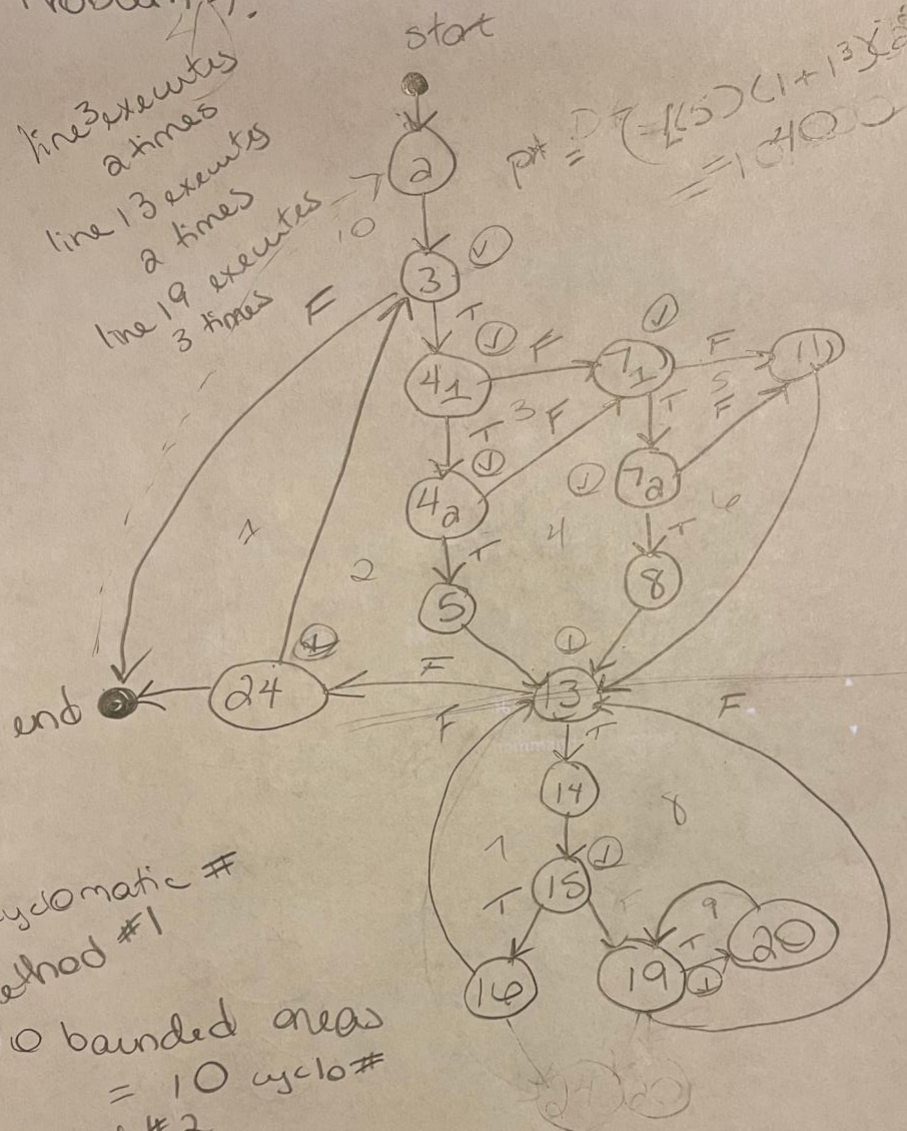 start
line 3 executes
2 times
line 13 executes
2 times
line 19 executes
3 times
pt =
2
10
3
F
T
1
4 1
F
7 1
1
F
11
3
T
F
1
T
5
F
4 2
1
7 2
6
1
2
T
4
T
5
8
1
24
1
F
13
end
F
T
F
14
8
7
15
1
T
T
9
16
19
T
1
20
yclomatic #
ethod #1
0 bounded areas
= 10 cyclo#
#2